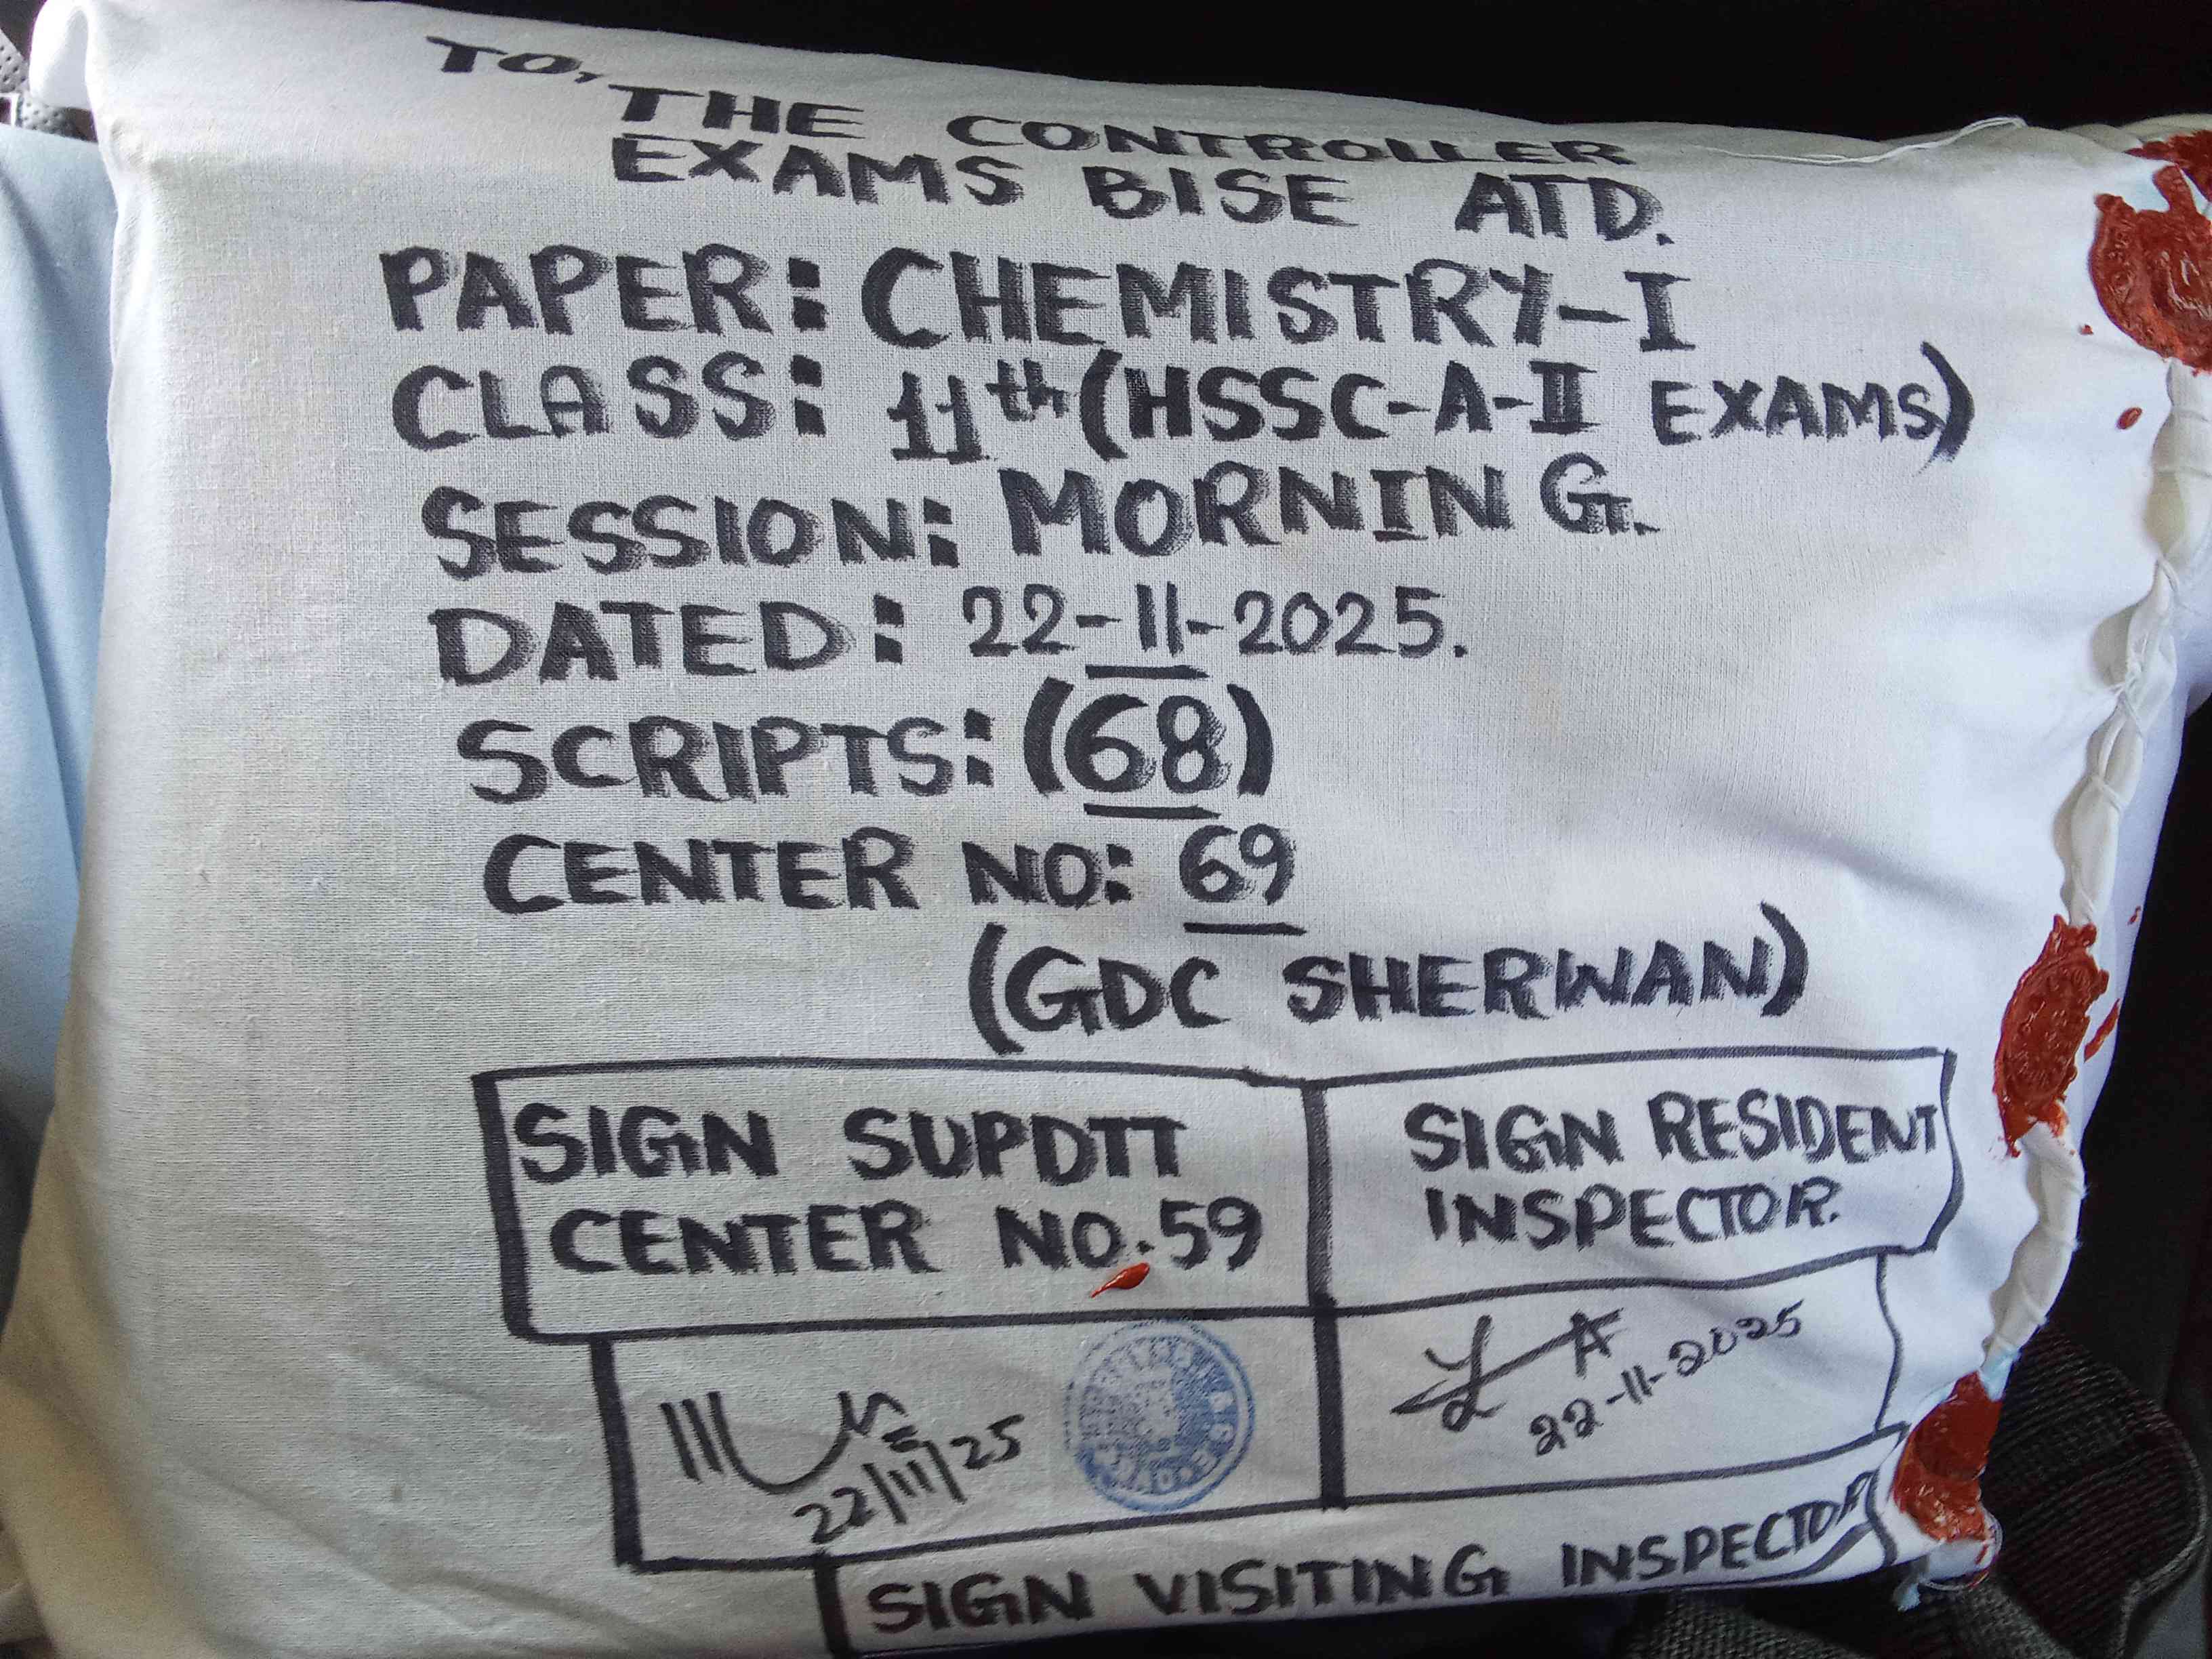 TO,
THE CONTROLLER
EXAMS BISE ATD.
PAPER: CHEMISTRY-I
CLASS: 11th (HSSC-A-II EXAMS)
SESSION: MORNING.
DATED: 22-11-2025.
SCRIPTS: (68)
CENTER NO: 69
(GDC SHERWAN)
SIGN SUPDTT
CENTER NO.59
SIGN RESIDENT
INSPECTOR.
22/11/25
22-11-2025
SIGN VISITING INSPECTOR